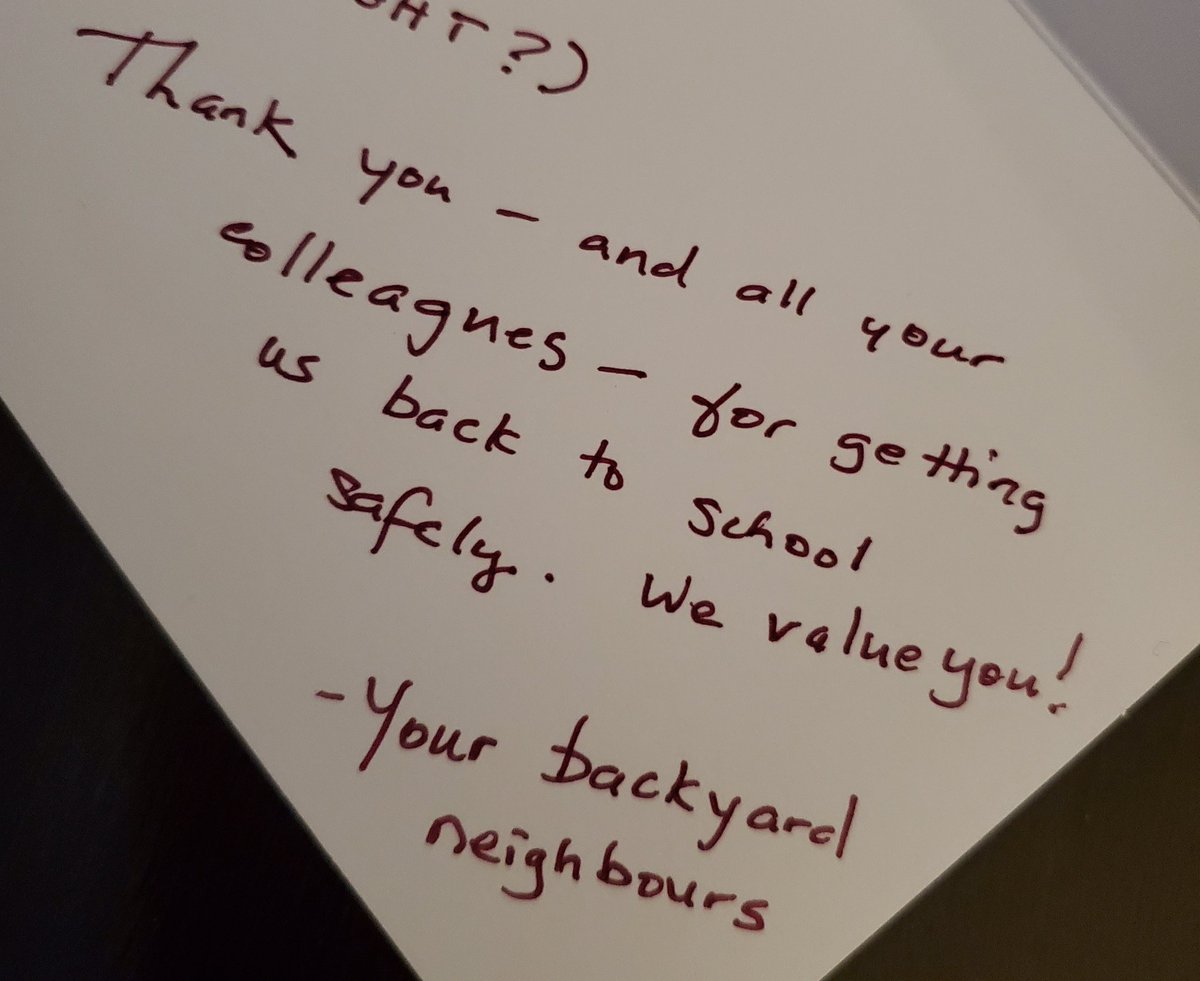 HT?)
Thank you – and all your
colleagues – for getting
us back to school
safely. We value you!
-Your backyard
neighbours